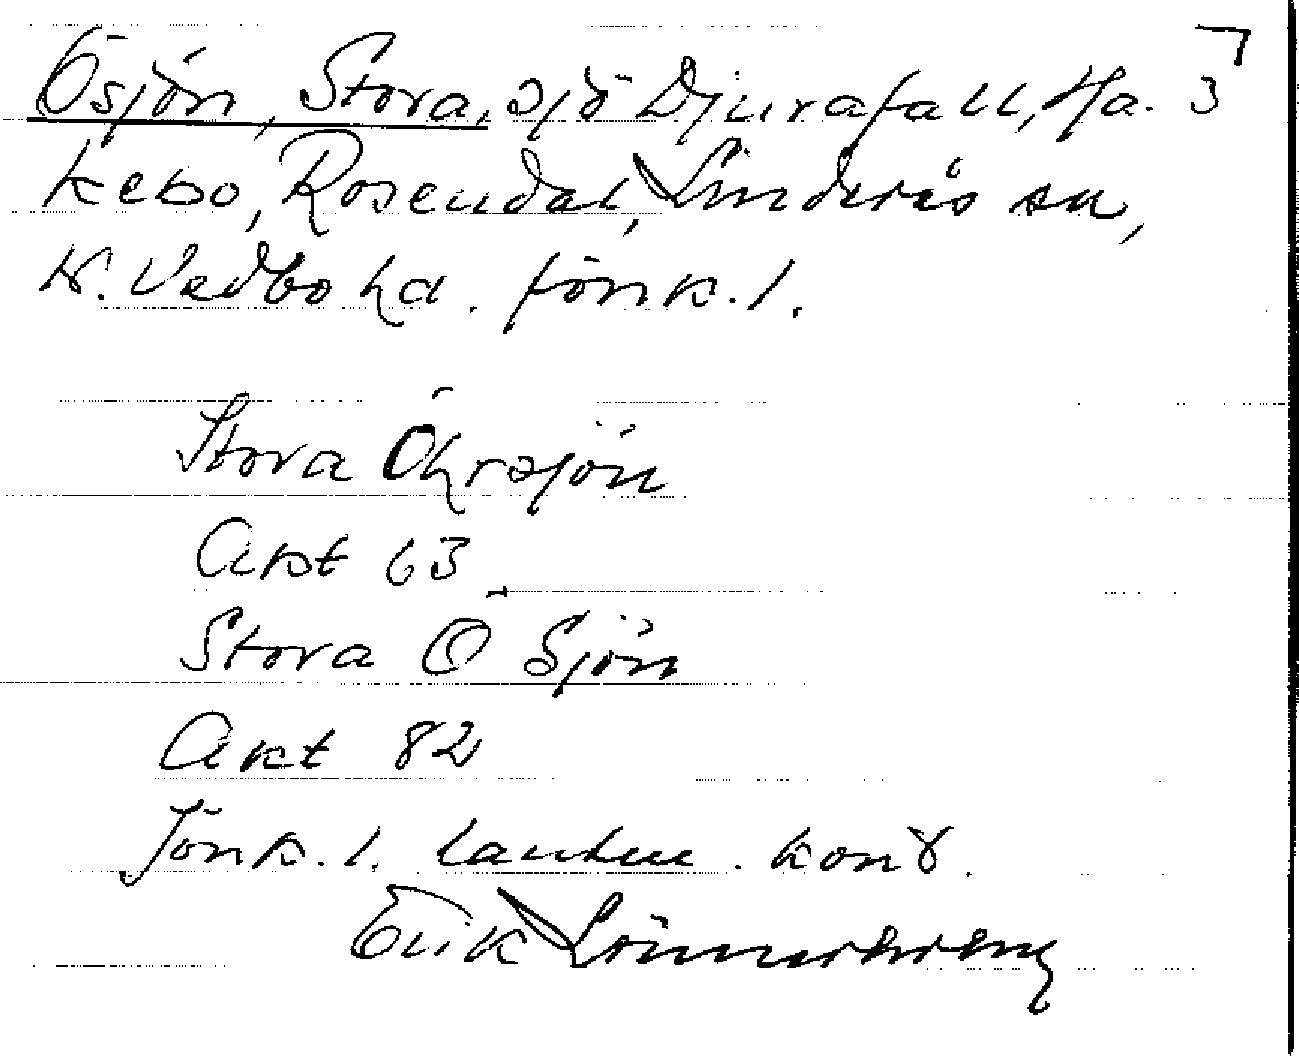 Ösjön, Stora, sjö Djurafall, Ha- 3
kebo, Rosendal, Linderås sn,
N. Vedbo hd. Jönk. l.
Stora Öhrsjön
Akt 63
Stora Ö Sjön
Akt 82
Jönk. l. lantm. kont.
Erik